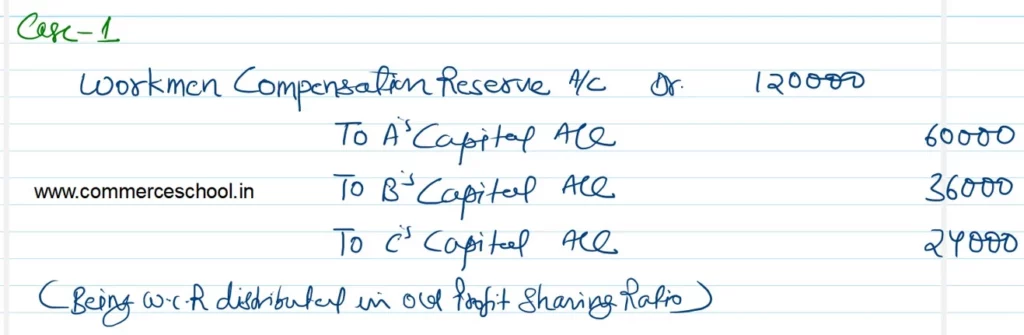 Case-1
Workmen Compensation Reserve A/C Dr. 120000
To A's Capital A/c 60000
www.commerceschool.in To B's Capital A/c 36000
To C's Capital A/c 24000
(Being W.C.R distributed in old Profit Sharing Ratio)